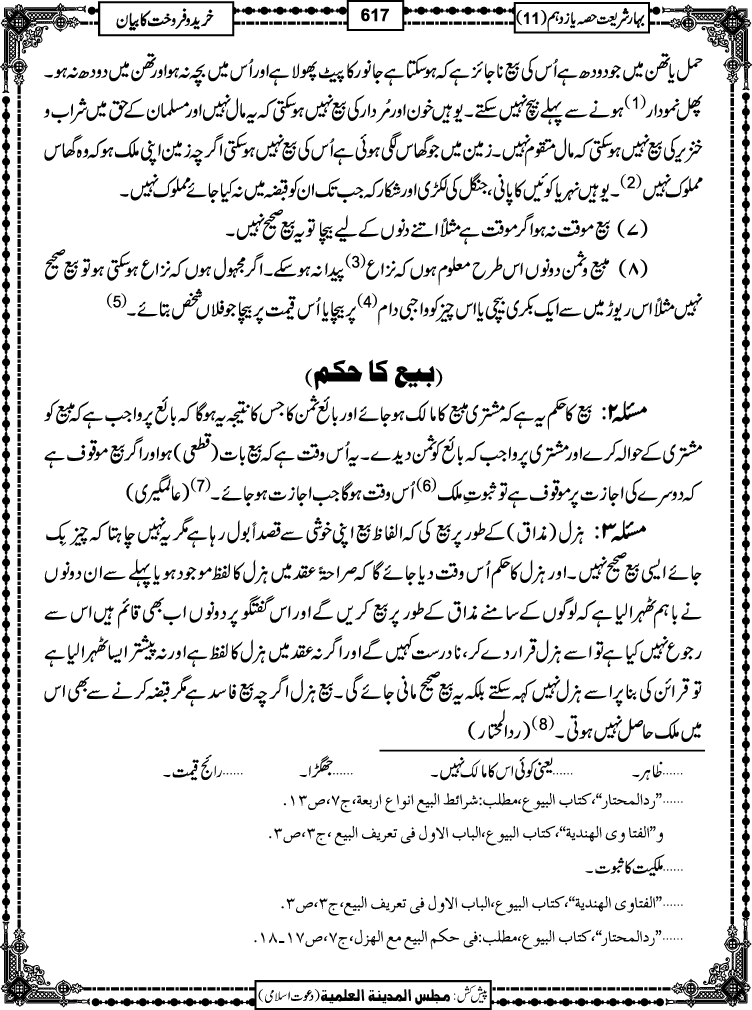 بہارِ شریعت حصہ یازدہم (11)
617
خرید و فروخت کا بیان
حمل یا تھن میں جو دودھ ہے اُس کی بیع ناجائز ہے کہ ہوسکتا ہے جانور کا پیٹ پھولا ہے اور اُس میں بچہ نہ ہو اور تھن میں دودھ نہ ہو۔
پھل نمودار(1) ہونے سے پہلے بیچ نہیں سکتے۔ یوہیں خون اور مُردار کی بیع نہیں ہوسکتی کہ یہ مال نہیں اور مسلمان کے حق میں شراب و
خنزیر کی بیع نہیں ہوسکتی کہ مال متقوم نہیں۔ زمین میں جو گھاس لگی ہوئی ہے اُس کی بیع نہیں ہوسکتی اگرچہ زمین اپنی ملک ہو کہ وہ گھاس
مملوک نہیں(2)۔ یوہیں نہر یا کوئیں کا پانی، جنگل کی لکڑی اور شکار کہ جب تک ان کو قبضہ میں نہ کیا جائے مملوک نہیں۔
(۷) بیع موقت نہ ہو اگر موقت ہے مثلاً اتنے دنوں کے لیے بیچا تو یہ بیع صحیح نہیں۔
(۸) مبیع و ثمن دونوں اس طرح معلوم ہوں کہ نزاع(3) پیدا نہ ہوسکے۔ اگر مجہول ہوں کہ نزاع ہوسکتی ہو تو بیع صحیح
نہیں مثلاً اس ریوڑ میں سے ایک بکری بیچی یا اس چیز کو واجبی دام(4) پر بیچا یا اُس قیمت پر بیچا جو فلاں شخص بتائے۔(5)
(بیع کا حکم)
مسئلہ ۲: بیع کا حکم یہ ہے کہ مشتری مبیع کا مالک ہو جائے اور بائع ثمن کا جس کا نتیجہ یہ ہوگا کہ بائع پر واجب ہے کہ مبیع کو
مشتری کے حوالہ کرے اور مشتری پر واجب کہ بائع کو ثمن دیدے۔ یہ اُس وقت ہے کہ بیع بات (قطعی) ہو اور اگر بیع موقوف ہے
کہ دوسرے کی اجازت پر موقوف ہے تو ثبوتِ ملک(6) اُس وقت ہوگا جب اجازت ہو جائے۔(7) (عالمگیری)
مسئلہ ۳: ہزل (مذاق) کے طور پر بیع کی کہ الفاظ بیع اپنی خوشی سے قصداً بول رہا ہے مگر یہ نہیں چاہتا کہ چیز بِک
جائے ایسی بیع صحیح نہیں۔ اور ہزل کا حکم اُس وقت دیا جائے گا کہ صراحۃً عقد میں ہزل کا لفظ موجود ہو یا پہلے سے ان دونوں
نے باہم ٹھہرا لیا ہے کہ لوگوں کے سامنے مذاق کے طور پر بیع کریں گے اور اس گفتگو پر دونوں اب بھی قائم ہیں اس سے
رجوع نہیں کیا ہے تو اسے ہزل قرار دے کر، نادرست کہیں گے اور اگر نہ عقد میں ہزل کا لفظ ہے اور نہ پیشتر ایسا ٹھہرا لیا ہے
تو قرائن کی بنا پر اسے ہزل نہیں کہہ سکتے بلکہ یہ بیع صحیح مانی جائے گی۔ بیع ہزل اگرچہ بیع فاسد ہے مگر قبضہ کرنے سے بھی اس
میں ملک حاصل نہیں ہوتی۔(8) (ردالمحتار)
......ظاہر۔ ......یعنی کوئی اس کا مالک نہیں۔ ......جھگڑا۔ ......رائج قیمت۔
......"ردالمحتار"، کتاب البیوع، مطلب: شرائط البیع انواع اربعة، ج۷، ص۱۳.
و"الفتاوی الهندیة"، کتاب البیوع، الباب الاول فی تعریف البیع، ج۳، ص۳.
......ملکیت کا ثبوت۔
......"الفتاوی الهندیة"، کتاب البیوع، الباب الاول فی تعریف البیع، ج۳، ص۳.
......"ردالمحتار"، کتاب البیوع، مطلب: فی حکم البیع مع الهزل، ج۷، ص۱۷۔۱۸.
پیش کش: مجلس المدینة العلمیة (دعوتِ اسلامی)